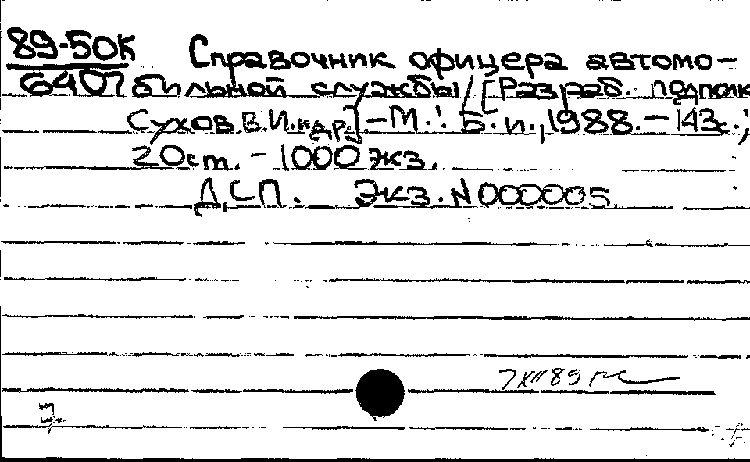 89-50к Справочник офицера автомо-
6407 бильной службы/[Разраб. подполк
Сухов В.И. и др.]-М.: Б.и., 1988.-143с.;
20см. - 1000 экз.
Д.С.П. Экз. N 000005